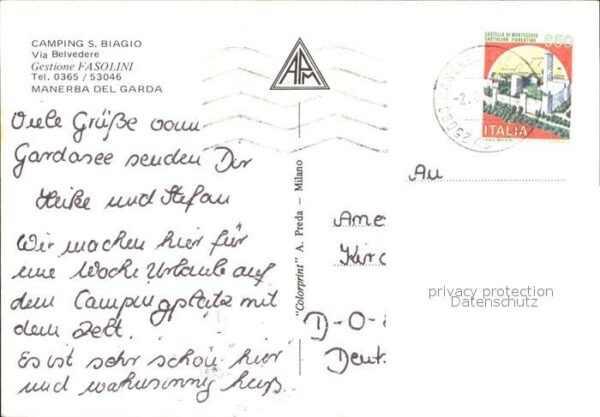 CAMPING S. BIAGIO
Via Belvedere
Gestione FASOLINI
Tel. 0365 / 53046
MANERBA DEL GARDA
Viele Grüße vom
Gardasee senden Dir
Heike und Stefan
Wir machen hier für
eine Woche Urlaub auf
dem Campingplatz mit
dem Zelt.
Es ist sehr schön hier
und wahnsinnig heiß.
APM
"Colorprint" A. Preda - Milano
CASTELLO DI MONTECCHIO
CASTIGLION FIORENTINO
650
ITALIA
25080
An
Ame
Kirc
D-O-
Deut
privacy protection
Datenschutz